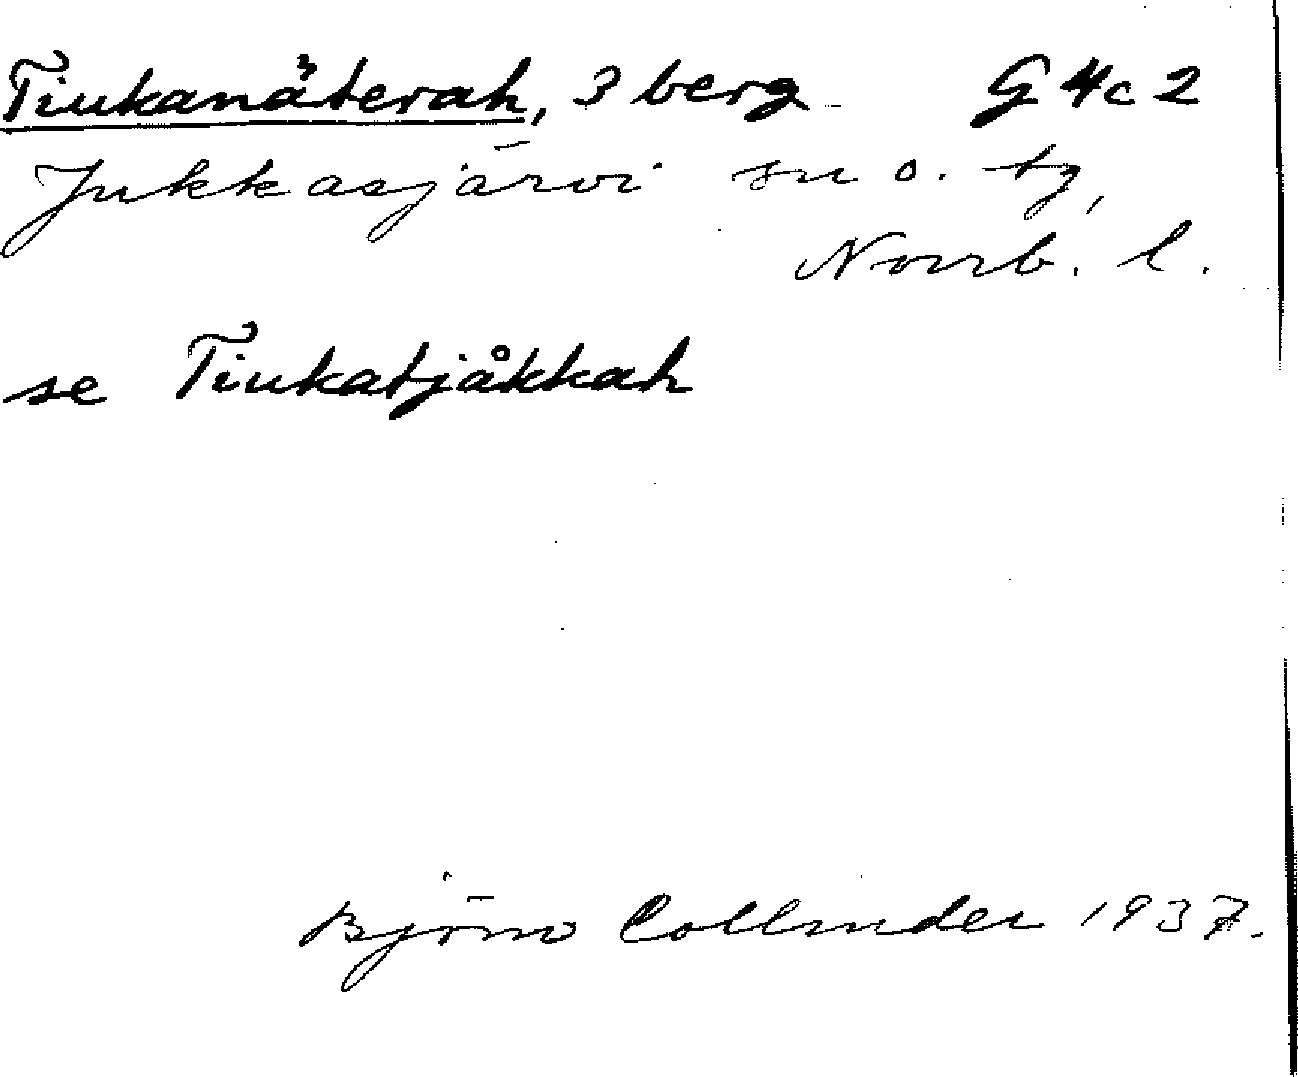 Tiukanäterah, 3 berg G 4c 2
Jukkasjärvi sn o. tg,
Norrb. l.
se Tiukatjåkkah
Björn Collinder 1937.